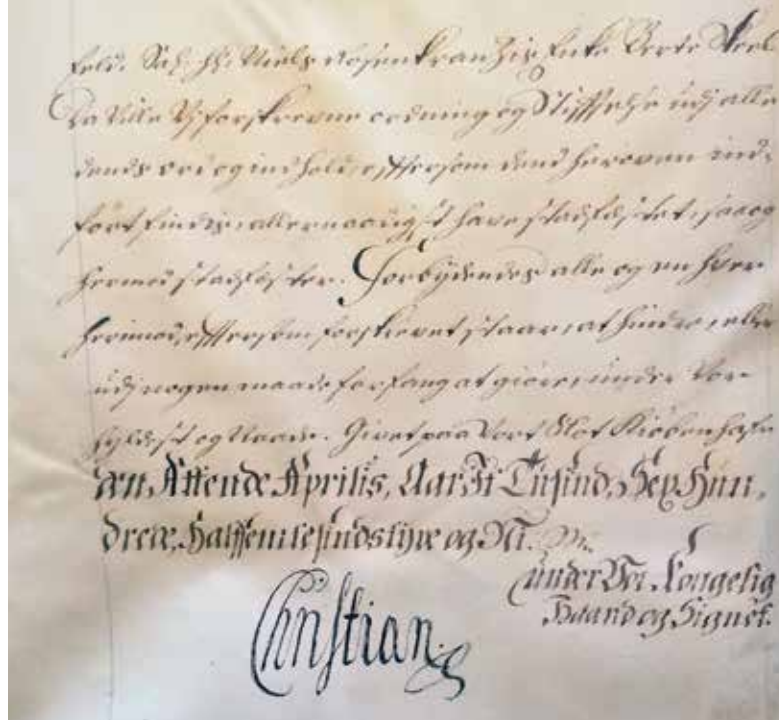 Feld. Sal. Hl. Niels Rosenkrantzis Enke Berte Skeel
Da Ville Vj forskrevne ordning og Stifftelse udj alle
dends ord og indhold, effersom dend herowen ind-
fört findis, allernaadigst hawe stadfæstet, saa og
hermed stadfæster. Forbydendes alle og en hver
herimod, effersom forskrevet staar, at hindre, eller
udj nogen maade forfang at giöre, under Vor
hyldest og Naade. Givet paa Vort Slot Kiöbenhafn
den Attende Aprilis, Aar Et Tusind, Sex Hun-
drede, Halffemtesindstyve og Ni.
Under Vor Kongelig
Haand og Signet.
Christian